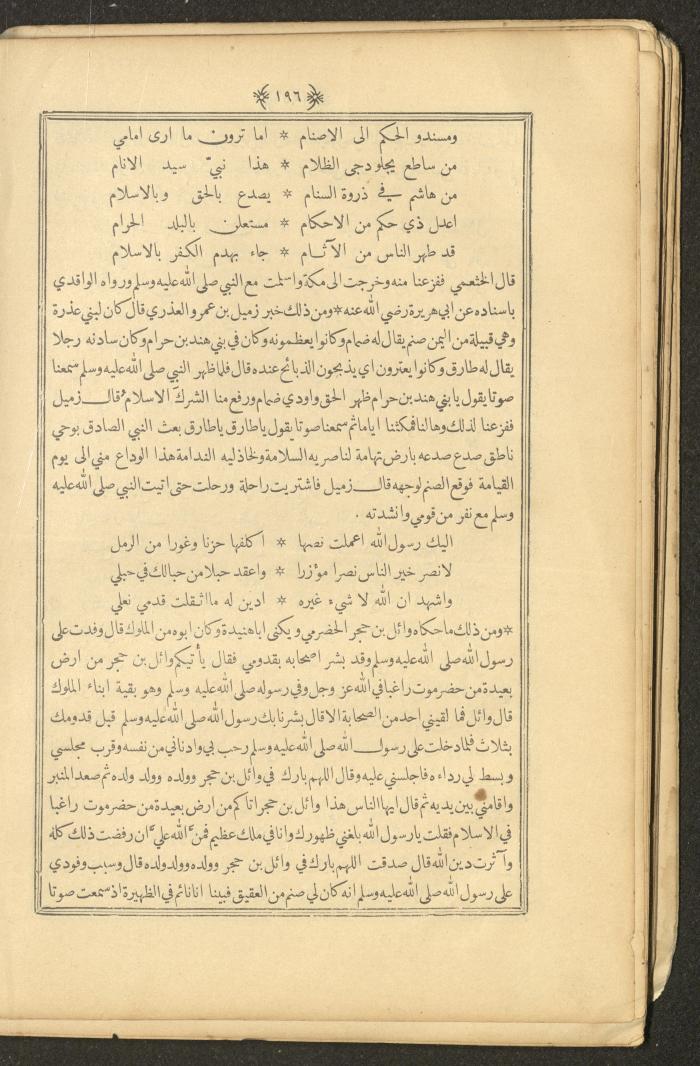 ١٩٦
ومسندو الحكم الى الاصنام * اما ترون ما ارى امامي
من ساطع يجلو دجى الظلام * هذا نبيّ سيد الانام
من هاشم في ذروة السنام * يصدع بالحق وبالاسلام
اعدل ذي حكم من الاحكام * مستعلن بالبلد الحرام
قد طهر الناس من الآثام * جاء بهدم الكفر بالاسلام
قال الخثعمي ففزعنا منه وخرجت الى مكة واسلمت مع النبي صلى الله عليه وسلم ورواه الواقدي
باسناده عن ابي هريرة رضي الله عنه * ومن ذلك خبر زميل بن عمرو العذري قال كان لبني عذرة
وهي قبيلة من اليمن صنم يقال له ضمام وكانوا يعظمونه وكان في بني هند بن حرام وكان سادنه رجلا
يقال له طارق وكانوا يعترون اي يذبحون الذبائح عنده قال فلما ظهر النبي صلى الله عليه وسلم سمعنا
صوتا يقول يا بني هند بن حرام ظهر الحق واودي ضمام ورفع منا الشرك الاسلام * قال زميل
ففزعنا لذلك وهالنا فمكثنا اياما ثم سمعنا صوتا يقول ياطارق ياطارق بعث النبي الصادق بوحي
ناطق صدع صدعه بارض تهامة لناصريه السلامة ولخاذليه الندامة هذا الوداع مني الى يوم
القيامة فوقع الصنم لوجهه قال زميل فاشتريت راحلة ورحلت حتى اتيت النبي صلى الله عليه
وسلم مع نفر من قومي وانشدته .
اليك رسول الله اعملت نصها * اكلفها حزنا وغورا من الرمل
لانصر خير الناس نصرا مؤزرا * واعقد حبلا من حبالك في حبلي
واشهد ان الله لا شيء غيره * ادين له ما اثقلت قدمي نعلي
* ومن ذلك ما حكاه وائل بن حجر الحضرمي ويكنى اباهنيدة وكان ابوه من الملوك قال وفدت على
رسول الله صلى الله عليه وسلم وقد بشر اصحابه بقدومي فقال يأتيكم وائل بن حجر من ارض
بعيدة من حضرموت راغبا في الله عز وجل وفي رسوله صلى الله عليه وسلم وهو بقية ابناء الملوك
قال وائل فما لقيني احد من الصحابة الا قال بشرنا بك رسول الله صلى الله عليه وسلم قبل قدومك
بثلاث فلما دخلت على رسول الله صلى الله عليه وسلم رحب بي وادناني من نفسه وقرب مجلسي
وبسط لي رداءه فاجلسني عليه وقال اللهم بارك في وائل بن حجر وولده وولد ولده ثم صعد المنبر
واقامني بين يديه ثم قال ايها الناس هذا وائل بن حجر اتاكم من ارض بعيدة من حضرموت راغبا
في الاسلام فقلت يارسول الله بلغني ظهورك وانا في ملك عظيم فمنّ الله عليّ ان رفضت ذلك كله
وآثرت دين الله قال صدقت اللهم بارك في وائل بن حجر وولده وولد ولده قال وسبب وفودي
على رسول الله صلى الله عليه وسلم انه كان لي صنم من العقيق فبينا انا نائم في الظهيرة اذ سمعت صوتا